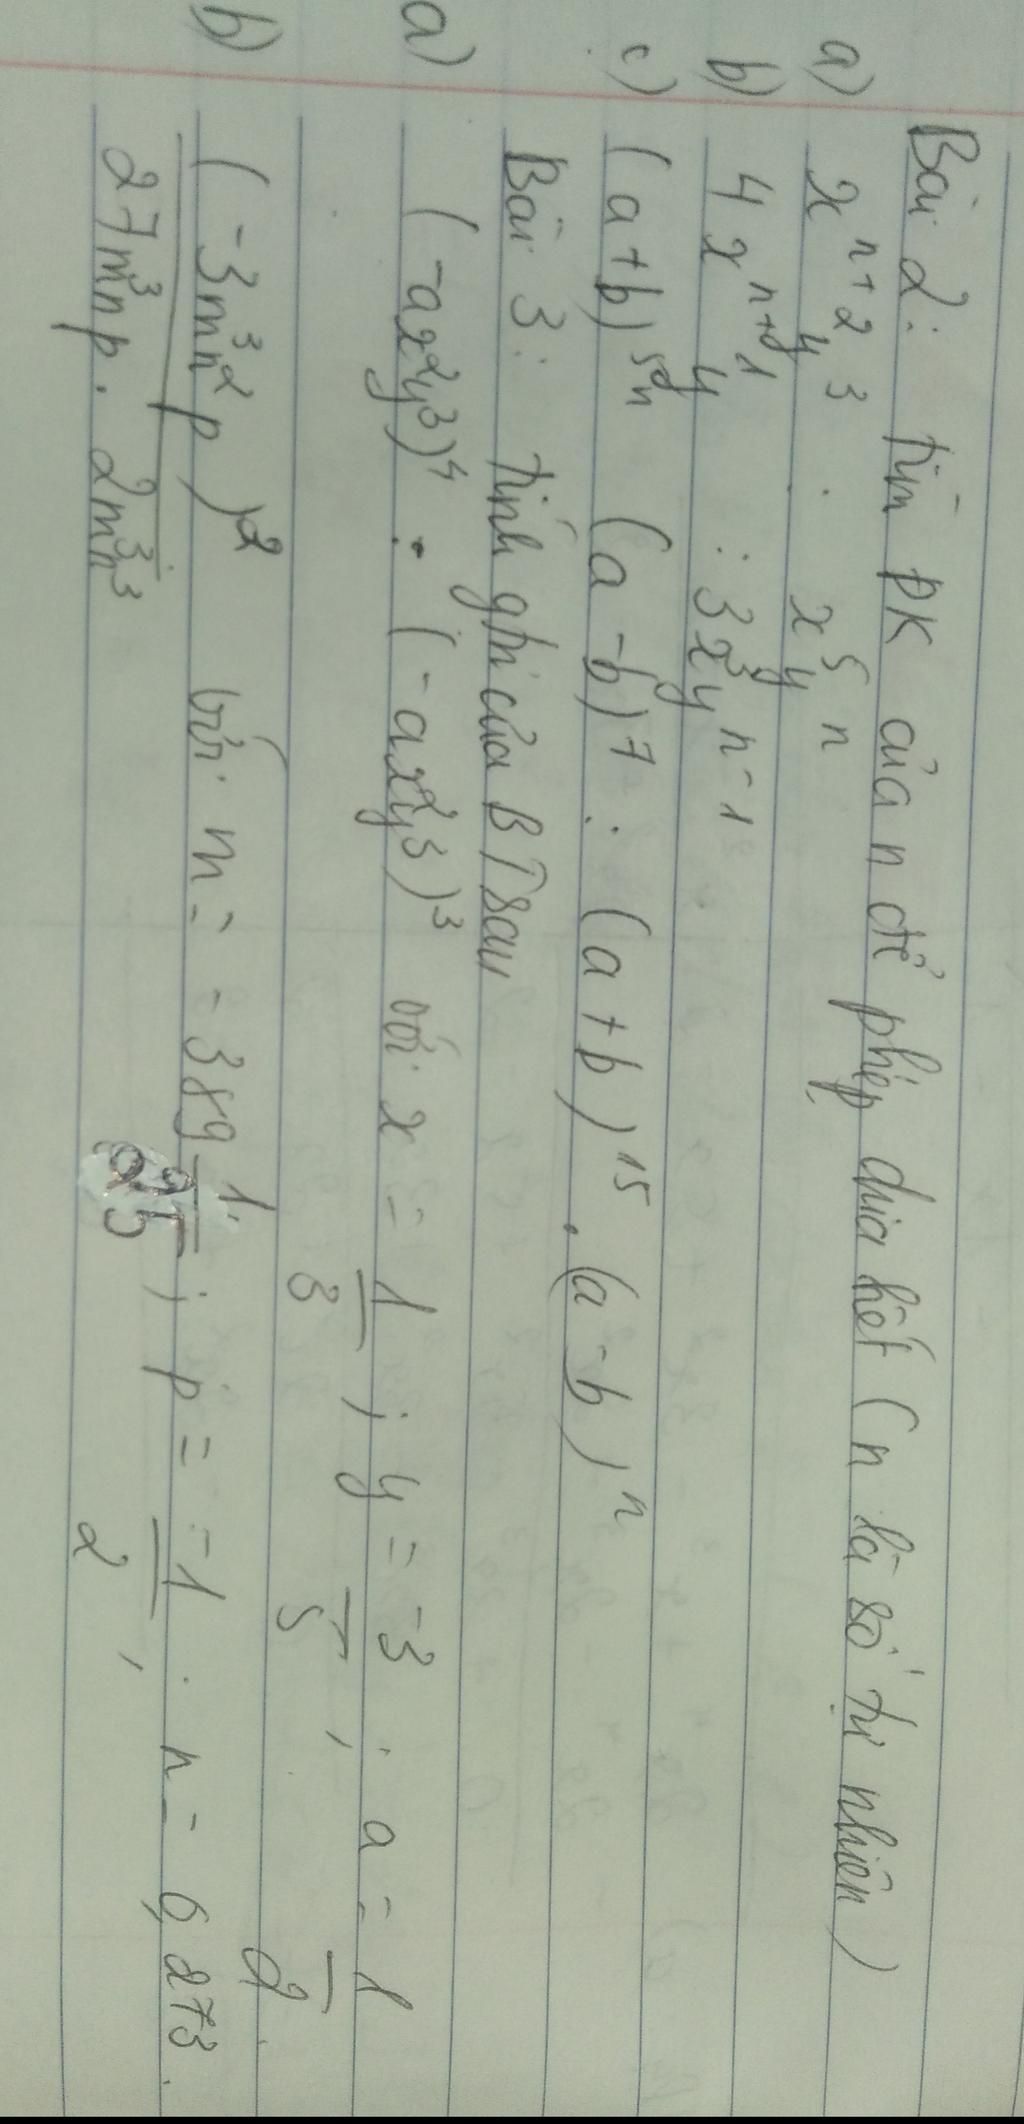 Bài 2: Tìm ĐK của n để phép chia hết (n là số tự nhiên)
a) x^{n+2} y^3 : x^5 y^n
b) 4x^{n+1} y : 3x^3 y^{n-1}
c) (a+b)^{5n} (a-b)^7 : (a+b)^{15} . (a-b)^n
Bài 3: Tính ghi của BT sau
a) (-ax^2y^3)^4 : (-ax^2y^3)^3 với x = 1/3 ; y = -3/5 ; a = 1/2
b) (-3m^3n^2p)^2 / 27m^3np . 2m^3n^3 với m = -389 1/25 ; p = -1/2 ; n = 6273.